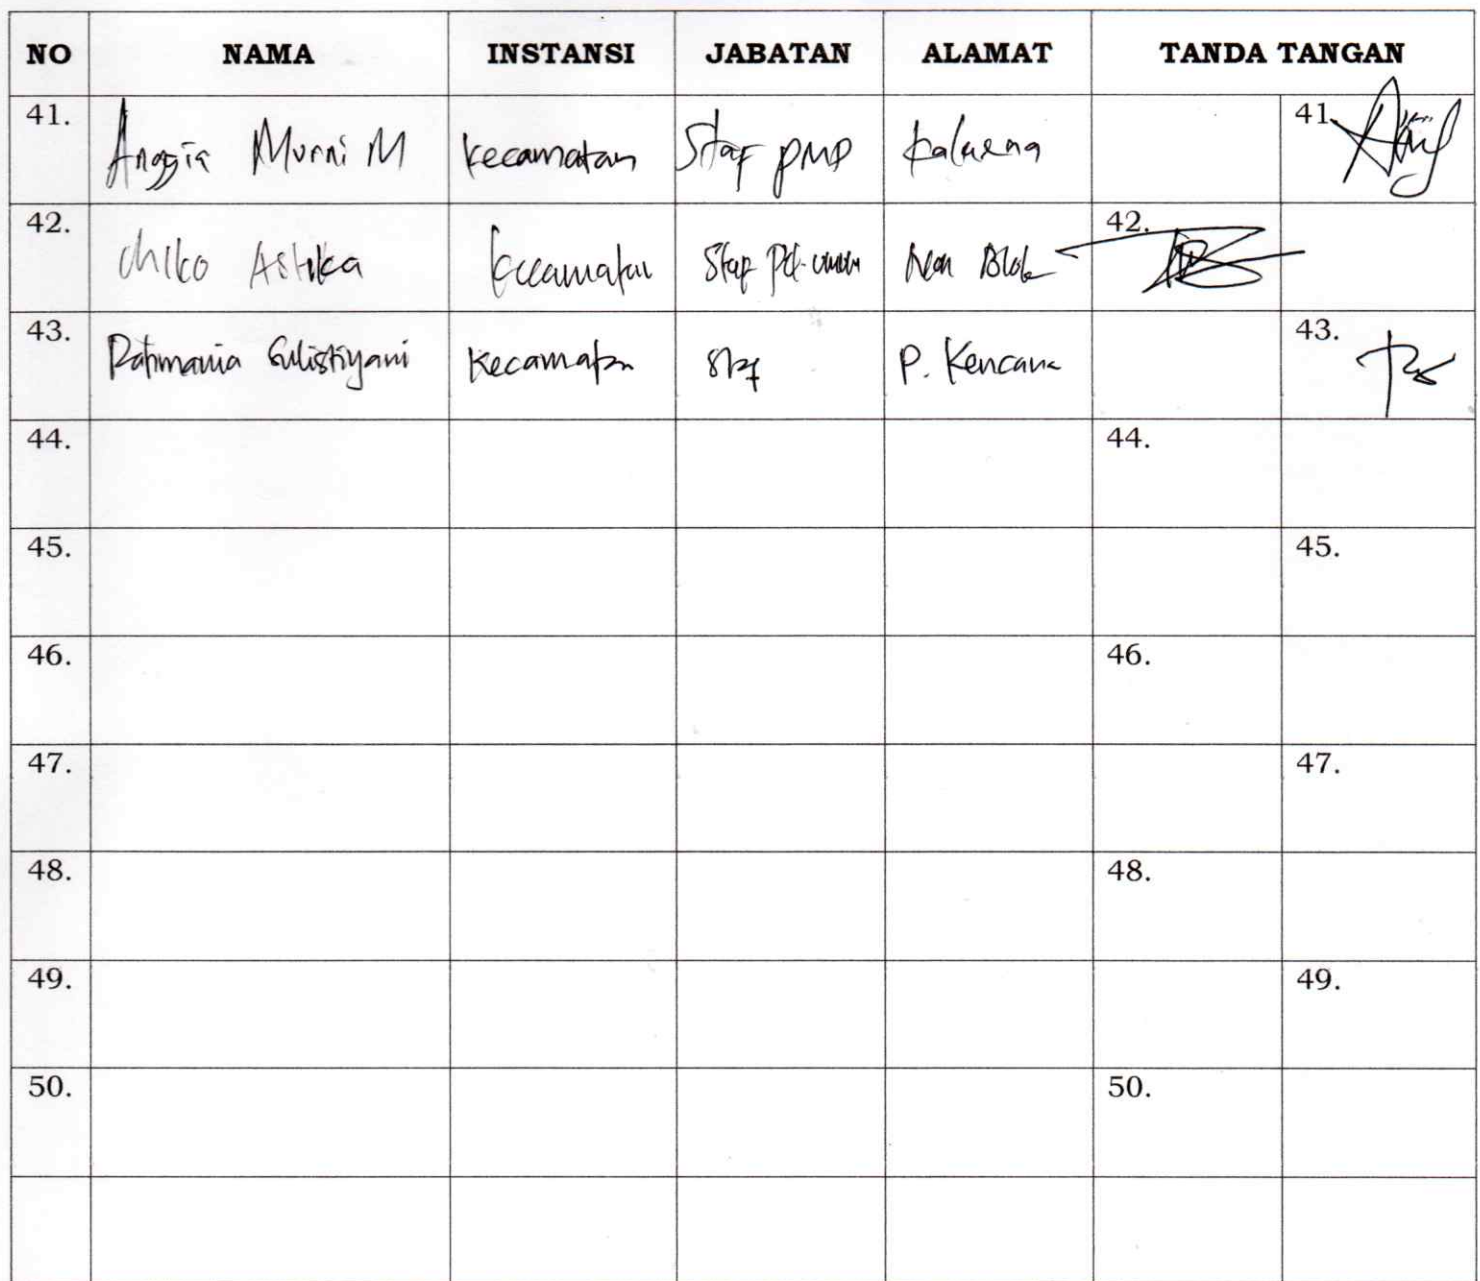 NO NAMA INSTANSI JABATAN ALAMAT TANDA TANGAN
41. Anggia Murni M Kecamatan Staf PMP 41.
42. Chiko Astika Kecamatan Staf 42.
43. Rahmania Sulistiyani Kecamatan Staf P. Kencana 43.
44. 44.
45. 45.
46. 46.
47. 47.
48. 48.
49. 49.
50. 50.